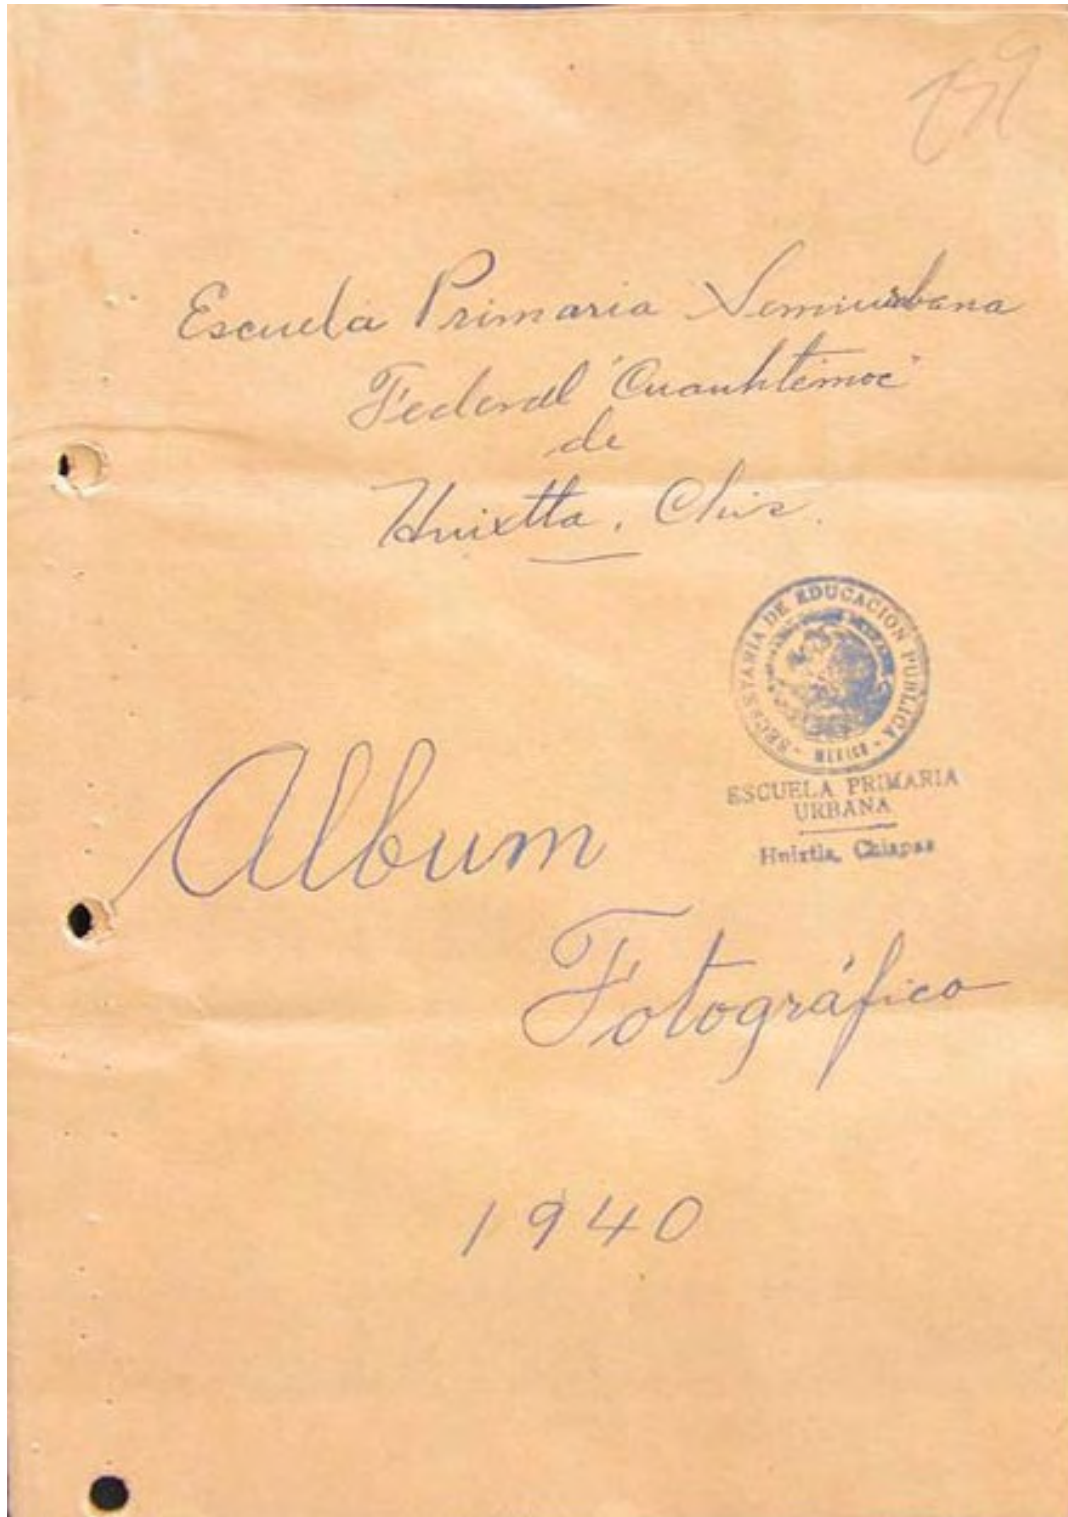 Escuela Primaria Semiurbana
Federal "Cuauhtémoc"
de
Huixtla, Chis.
SECRETARIA DE EDUCACION PUBLICA
- MEXICO -
ESCUELA PRIMARIA
URBANA
Huixtla, Chiapas
Album
Fotográfico
1940